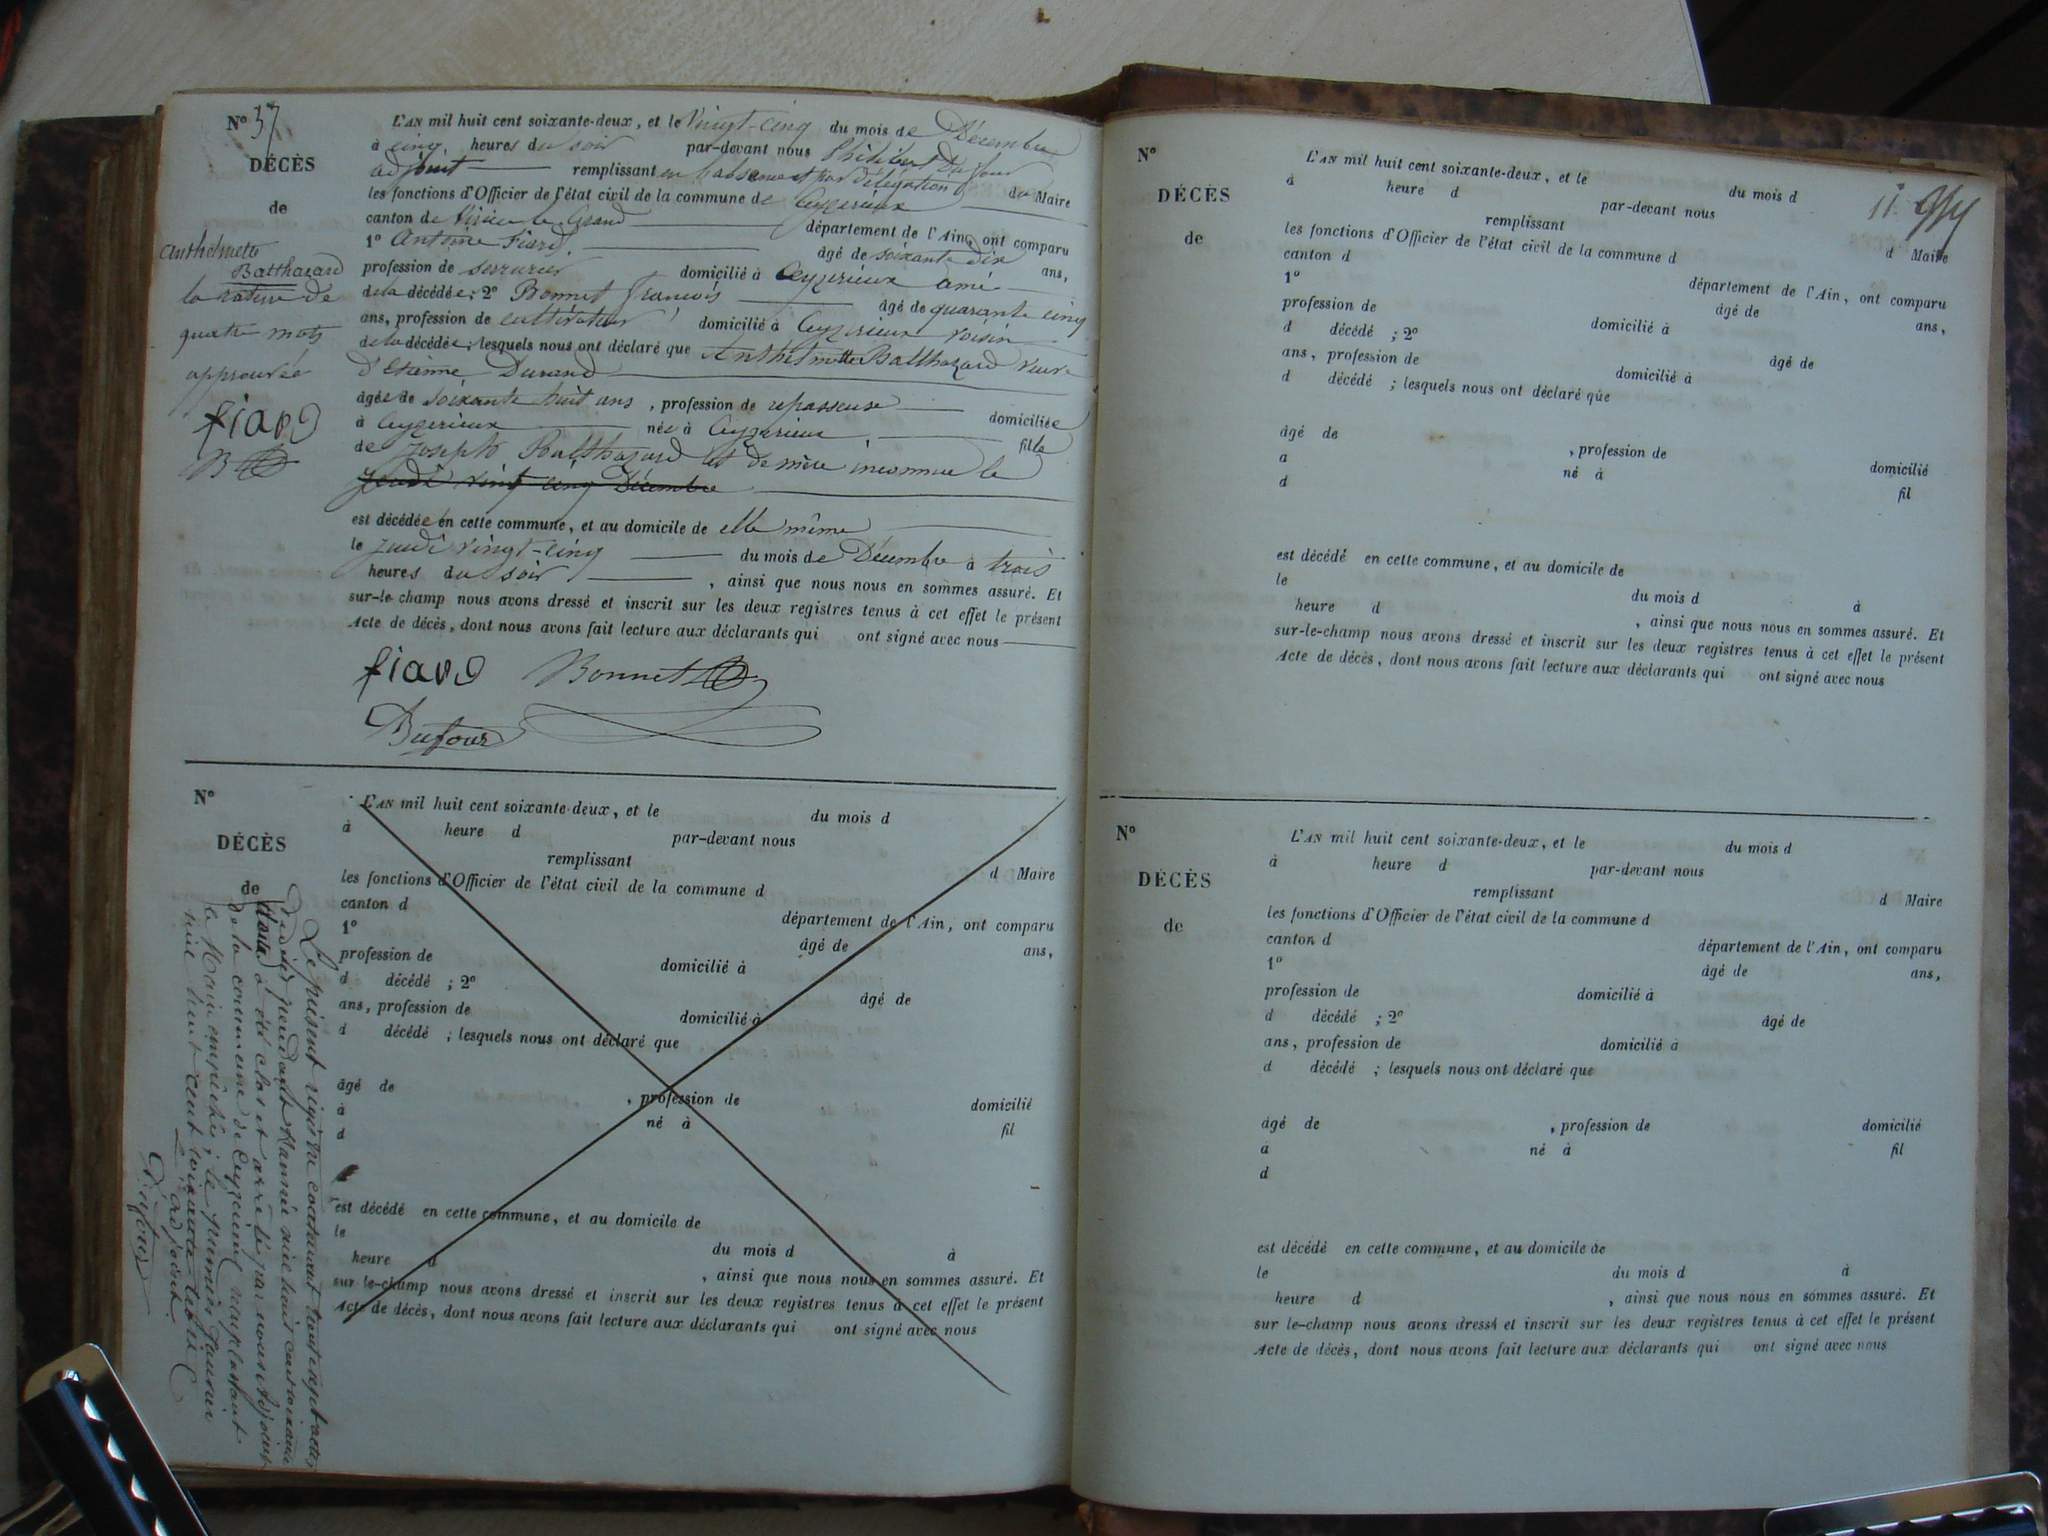 N° 37
DÉCÈS
de
Anthelmete
Balthazard
la rature de
quatre mots
approuvée
fiard
B
L'AN mil huit cent soixante-deux, et le Vingt-cinq du mois de Décembre
à cinq heures du soir par-devant nous Philibert Dufour
adjoint remplissant par délégation
les fonctions d'Officier de l'état civil de la commune de Ceyzerieux du Maire
canton de Virieu le Grand département de l'Ain, ont comparu
1° Antoine Fiard âgé de soixante dix ans,
profession de serrurier domicilié à Ceyzerieux ami
de la décédée; 2° Bonnet françois âgé de quarante cinq
ans, profession de cultivateur domicilié à Ceyzerieux voisin
de la décédée; lesquels nous ont déclaré que Anthelmette Balthazard veuve
d'Etienne Durand
âgée de soixante huit ans, profession de repasseuse domiciliée
à Ceyzerieux née à Ceyzerieux fille
de Joseph Balthazard et de mère inconnue le
jeudi vingt cinq Décembre
est décédée en cette commune, et au domicile de elle même
le jeudi vingt-cinq du mois de Décembre à trois
heures du soir, ainsi que nous nous en sommes assuré. Et
sur-le champ nous avons dressé et inscrit sur les deux registres tenus à cet effet le présent
Acte de décès, dont nous avons fait lecture aux déclarants qui ont signé avec nous
fiard Bonnet
Dufour
N°
DÉCÈS
de
L'AN mil huit cent soixante-deux, et le du mois d
à heure d par-devant nous
remplissant
les fonctions d'Officier de l'état civil de la commune d d Maire
canton d département de l'Ain, ont comparu
1° âgé de ans,
profession de domicilié à
d décédé ; 2° âgé de
ans, profession de domicilié à
d décédé ; lesquels nous ont déclaré que
âgé de , profession de domicilié
à né à fil
d
est décédé en cette commune, et au domicile de
le du mois d à
heure d , ainsi que nous nous en sommes assuré. Et
sur le-champ nous avons dressé et inscrit sur les deux registres tenus à cet effet le présent
Acte de décès, dont nous avons fait lecture aux déclarants qui ont signé avec nous
Le présent registre contenant trente sept actes
de décès pendant l'année mil huit cent soixante
deux a été clos et arrêté par nous adjoint
de la commune de Ceyzerieux remplaçant
le Maire empêché; le premier Janvier
mil huit cent soixante trois
L'adjoint
Dufour
11
N°
DÉCÈS
de
L'AN mil huit cent soixante-deux, et le du mois d
à heure d par-devant nous
remplissant
les fonctions d'Officier de l'état civil de la commune d d Maire
canton d département de l'Ain, ont comparu
1° âgé de ans,
profession de domicilié à
d décédé ; 2° âgé de
ans, profession de domicilié à
d décédé ; lesquels nous ont déclaré que
âgé de , profession de domicilié
a né à fil
d
est décédé en cette commune, et au domicile de
le du mois d à
heure d , ainsi que nous nous en sommes assuré. Et
sur-le-champ nous avons dressé et inscrit sur les deux registres tenus à cet effet le présent
Acte de décès, dont nous avons fait lecture aux déclarants qui ont signé avec nous
N°
DÉCÈS
de
L'AN mil huit cent soixante-deux, et le du mois d
à heure d par-devant nous
remplissant
les fonctions d'Officier de l'état civil de la commune d d Maire
canton d département de l'Ain, ont comparu
1° âgé de ans,
profession de domicilié à
d décédé ; 2° âgé de
ans, profession de domicilié à
d décédé ; lesquels nous ont déclaré que
âgé de , profession de domicilié
à né à fil
d
est décédé en cette commune, et au domicile de
le du mois d à
heure d , ainsi que nous nous en sommes assuré. Et
sur le-champ nous avons dressé et inscrit sur les deux registres tenus à cet effet le présent
Acte de décès, dont nous avons fait lecture aux déclarants qui ont signé avec nous